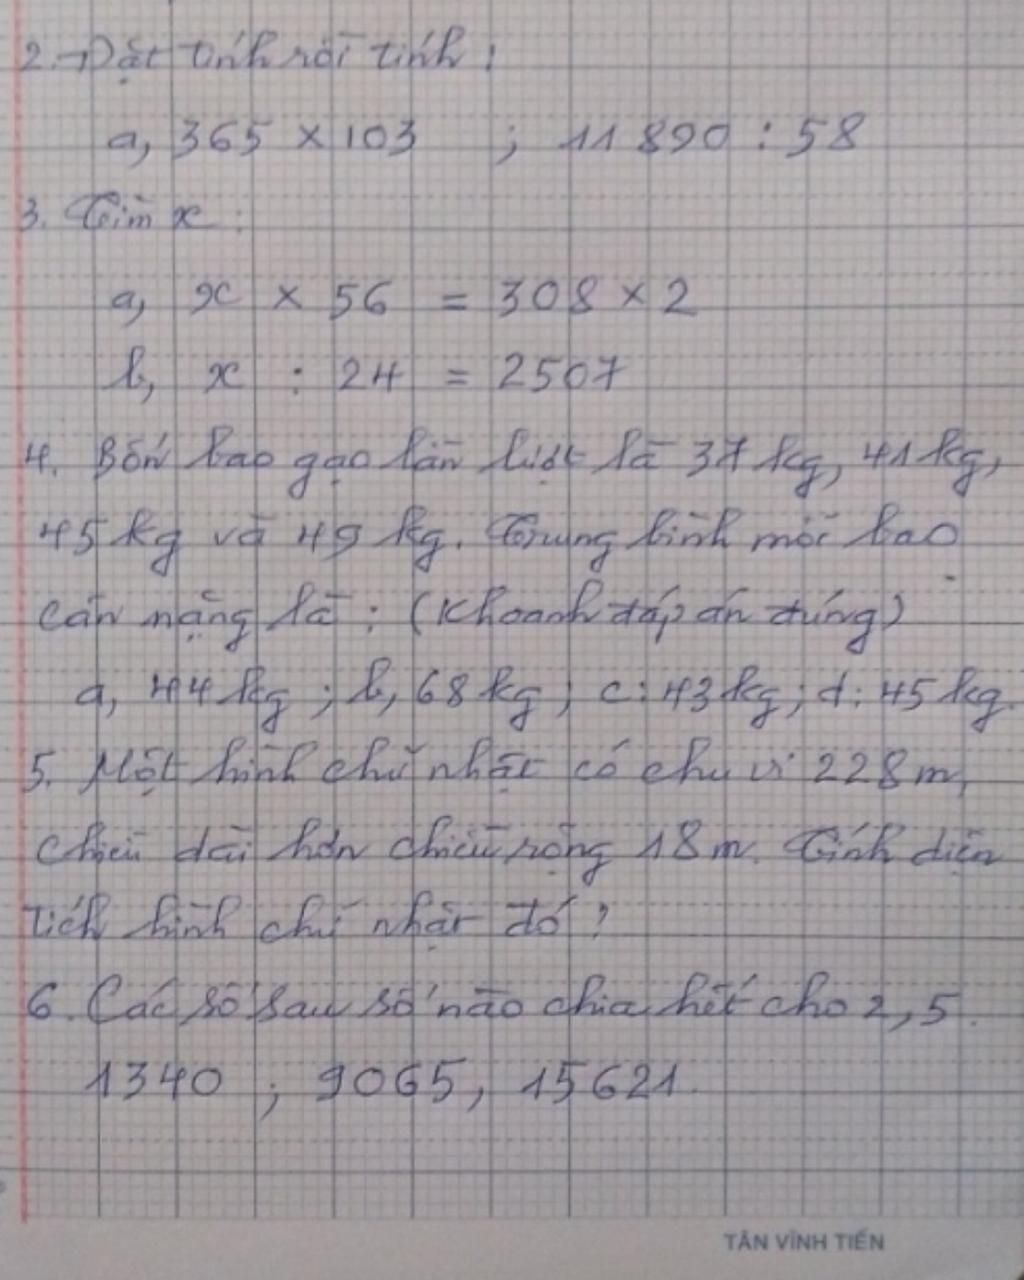 2. Đặt tính rồi tính:
a, 365 × 103 ; 11 890 : 58
3. Tìm x:
a, x × 56 = 308 × 2
b, x : 24 = 2507
4. Bốn bao gạo lần lượt là 37 kg, 41 kg,
45 kg và 49 kg. Trung bình mỗi bao
cân nặng là: (Khoanh đáp án đúng)
a, 44 kg ; b, 68 kg ; c: 43 kg ; d: 45 kg.
5. Một hình chữ nhật có chu vi 228 m,
chiều dài hơn chiều rộng 18 m. Tính diện
tích hình chữ nhật đó?
6. Các số sau số nào chia hết cho 2, 5.
1340 ; 9065, 15621.
TÂN VĨNH TIẾN